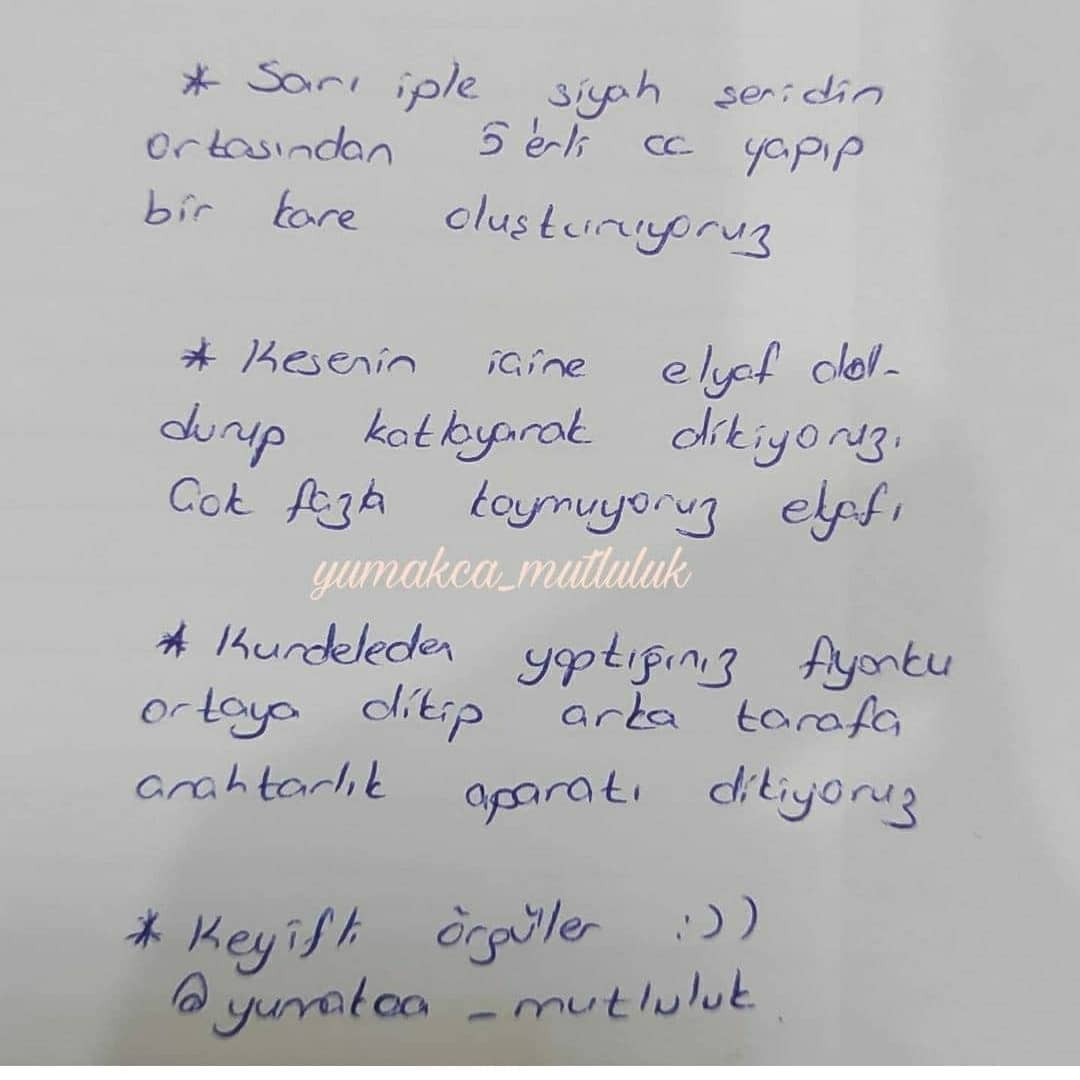 * Sarı iple siyah şeridin
ortasından 5'erli cc yapıp
bir kare oluşturuyoruz
* Kesenin içine elyaf dol-
durup katlayarak dikiyoruz.
Çok fazla koymuyoruz elyafı
yumakca_mutluluk
* Kurdeleden yaptığınız fiyonku
ortaya dikip arka tarafa
anahtarlık aparatı dikiyoruz
* Keyifli örgüler :))
@yumakca_mutluluk